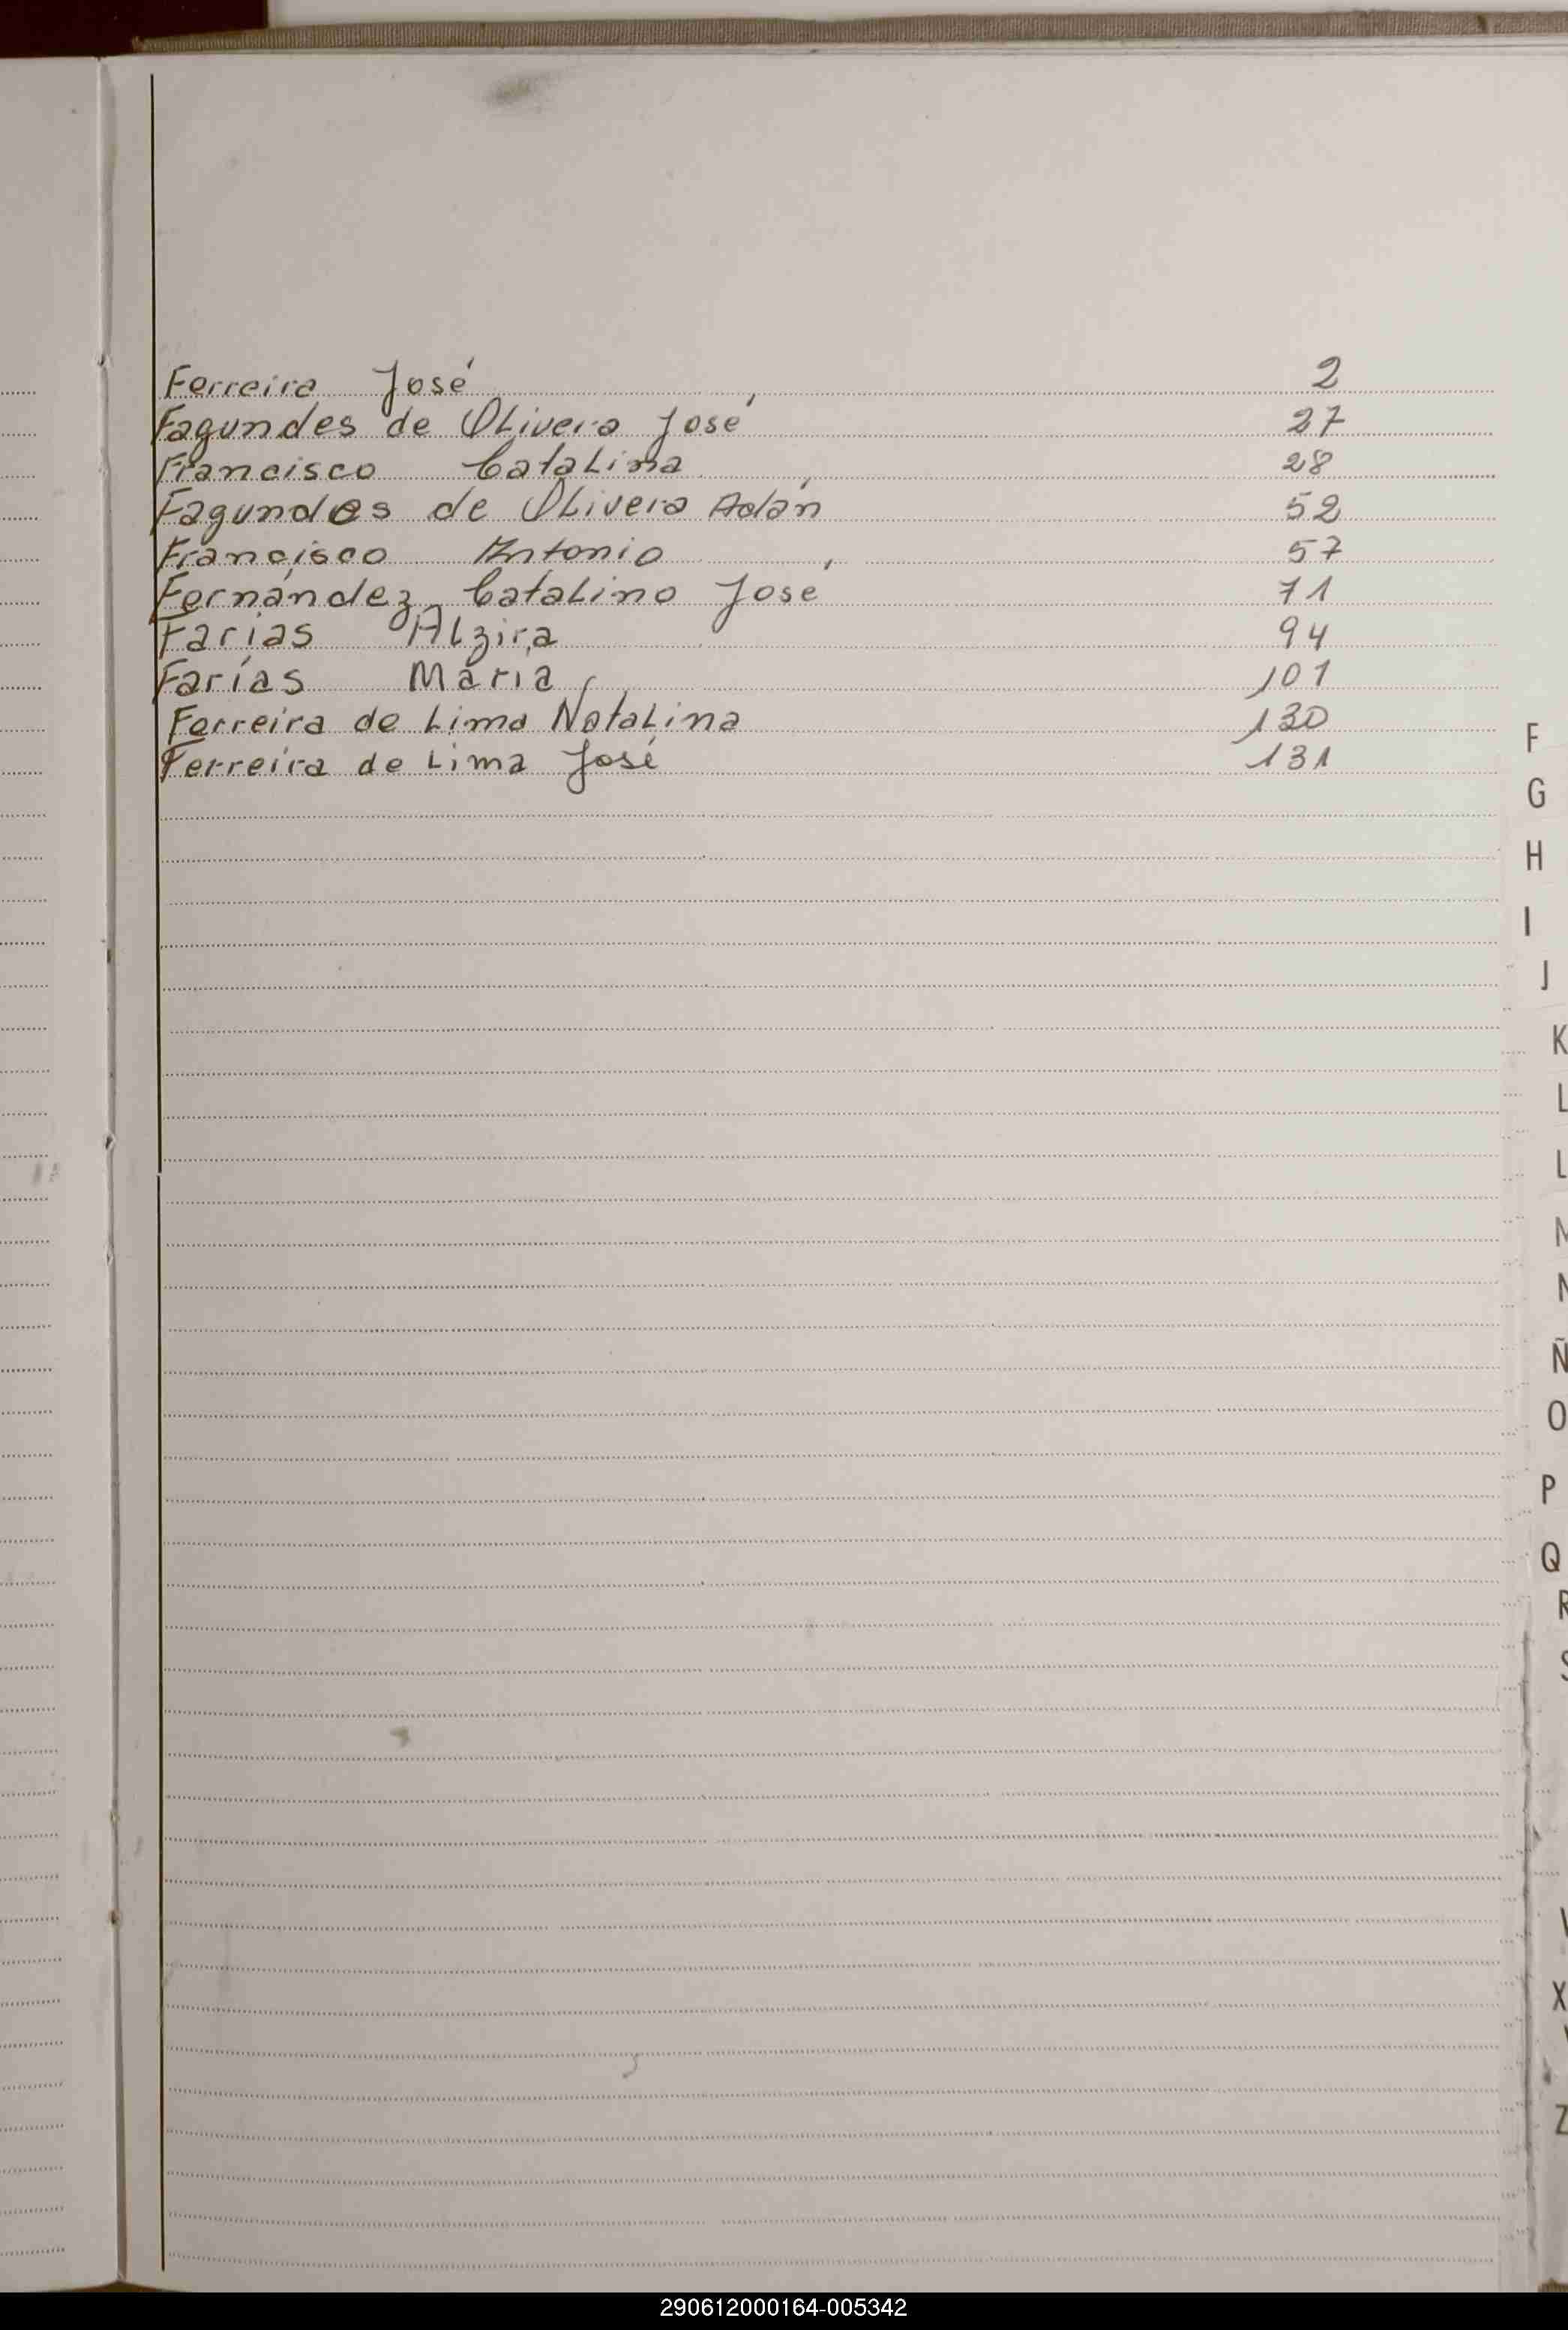 Ferreira José 2
Fagundes de Olivera José 27
Francisco Catalina 28
Fagundes de Olivera Adán 52
Francisco Antonio 57
Fernández Catalino José 71
Farias Alzira 94
Farías María 101
Ferreira de Lima Natalina 130
Ferreira de Lima José 131
F
G
H
I
J
K
L
L
M
N
Ñ
O
P
Q
R
S
V
X
Z
290612000164-005342